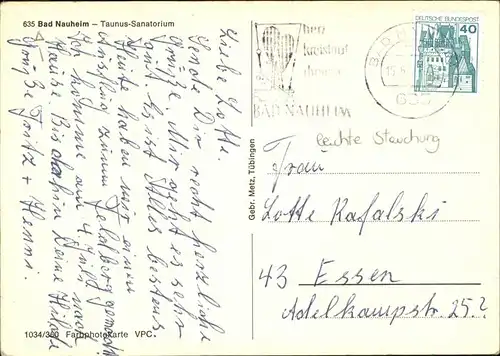 635 Bad Nauheim – Taunus-Sanatorium
Liebe Lotte.
Sende Dir recht herzliche
Grüße Mir geht es sehr
gut. Es ist alles bestens
Heute haben wir einen
Ausflug zum Feldberg gemacht
Ich komme am 4. nach
Hause. Bis dahin Deine Hilde
Grüße Fritz + Henni.
1034/360 Farbphotokarte VPC.
Gebr. Metz, Tübingen
herz
kreislauf
rheuma
BAD NAUHEIM
635
DEUTSCHE BUNDESPOST
40
leichte Stauchung
Frau
Lotte Kafalski
43 Essen
Adelkampstr. 25